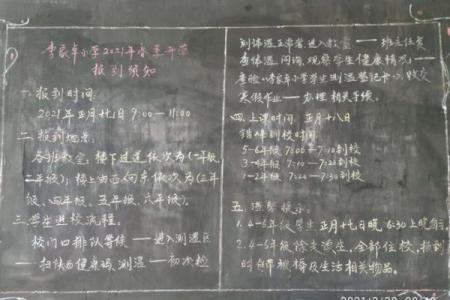 李家牟小学2021年春季开学
报到须知
一、报到时间:
2021年正月十七日 9:00—11:00
二、报到地点:
各班教室,楼下过道依次为(一年级、
二年级);楼上由西向东依次为(三年
级、四年级、五年级、六年级)。
三、学生进校流程:
校门口排队等候——进入测温区
——扫描健康码、测温——初次检
测体温正常者,进入教室——班主任复
查体温、问询、观察学生健康情况——
查验《李家牟小学学生测温登记卡》、收交
寒假作业——办理相关手续。
四、上课时间:正月十八日
错峰到校时间:
5-6年级 7:00-7:10到校
3-4年级 7:10-7:20到校
1-2年级 7:20-7:30到校
五、温馨提示:
1.4-6年级学生正月十七日晚6:30上晚自习。
2.4-6年级除走读生,全部住校,报到
时自带被褥及生活相关物品。